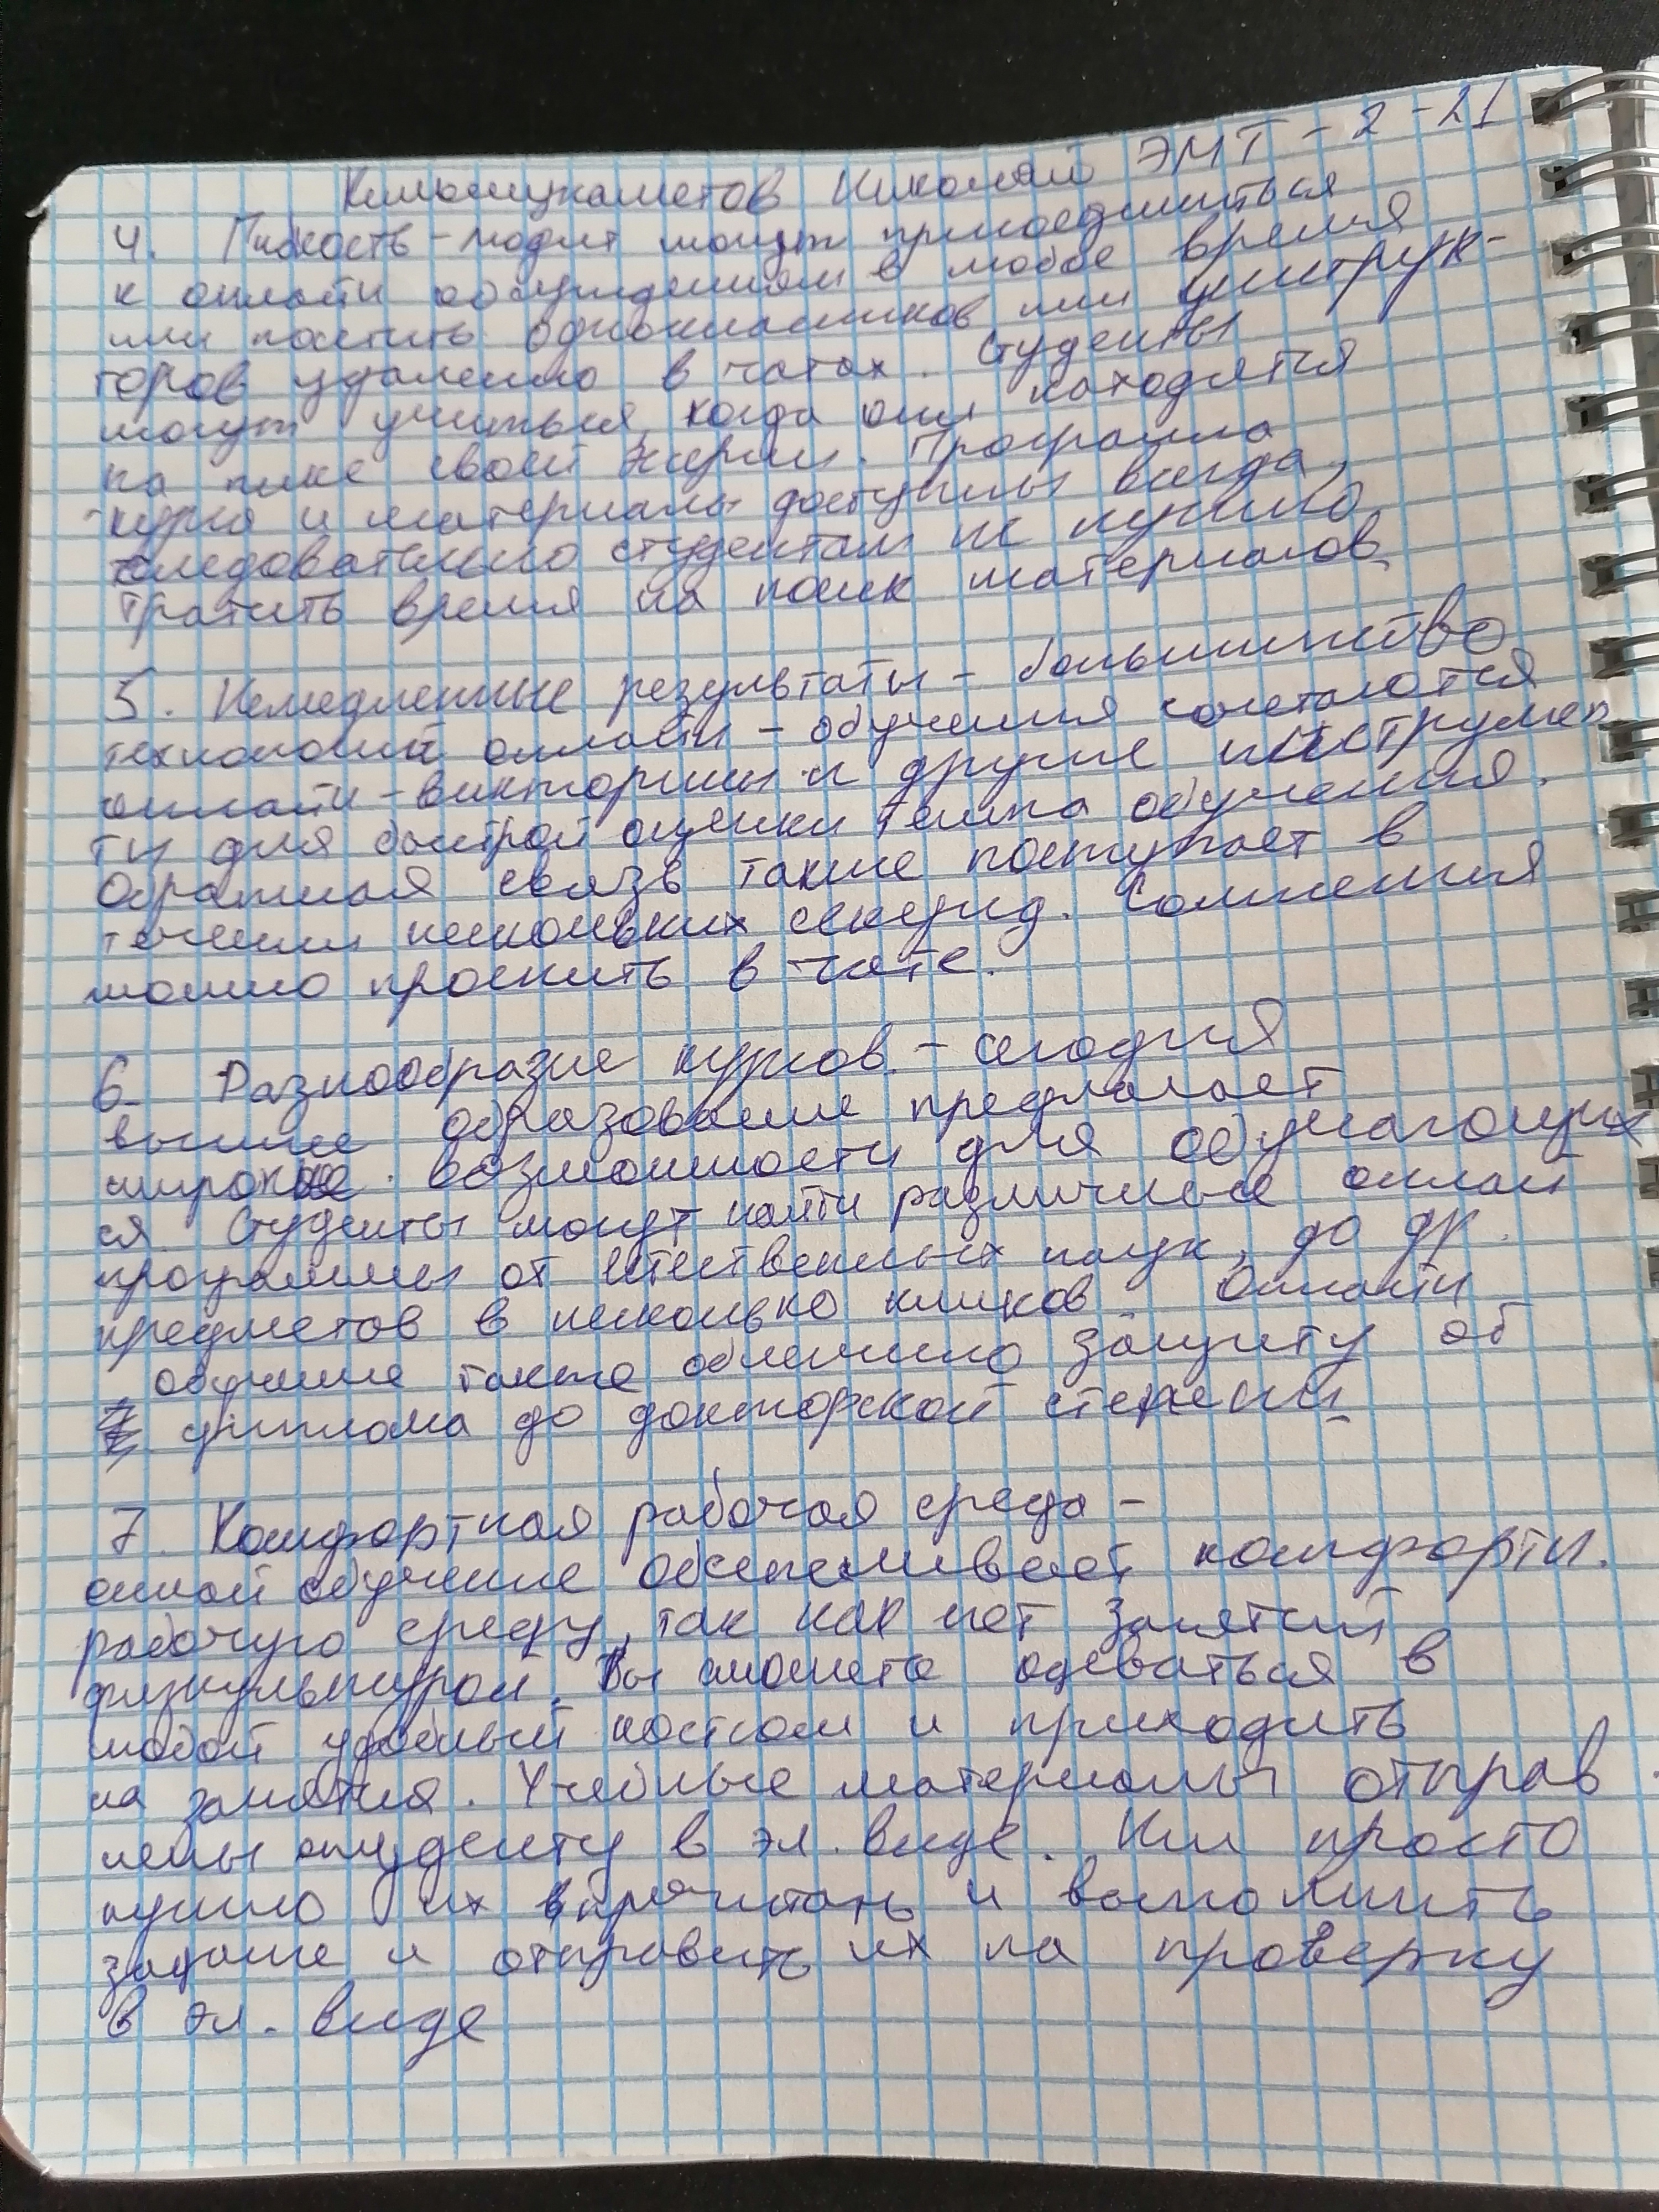 Николай ЭМТ-2-21
4. Гибкость - могут присоединиться
к онлайн обсуждениям в любое время
или посетить одноклассников или инструк-
торов удаленно в чатах. Студенты
могут учиться, когда они находятся
на пике своей энергии. Программа
курса и материалы доступны всегда,
следовательно студентам не нужно
тратить время на поиск материалов.
5. Немедленные результаты - большинство
технологий онлайн-обучения сочетаются
онлайн-викторины и другие инструмен
ты для быстрой оценки темпа обучения.
Обратная связь также поступает в
течении нескольких секунд. Сомнения
можно прояснить в чате.
6. Разнообразие курсов - сегодня
высшее образование предлагает
широкие возможности для обучающих
ся. Студенты могут найти различные онлайн
программы от естественных наук, до др.
предметов в несколько кликов. Онлайн
обучение также облегчило защиту об
диплома до докторской степени.
7. Комфортная рабочая среда -
онлайн обучение обеспечивает комфортн.
рабочую среду, так как нет занятий
физкультурой. Вы можете одеваться в
любой удобный костюм и приходить
на занятия. Учебные материалы отправ
лены студенту в эл. виде. Им просто
нужно их прочитать и выполнить
задание и отправить их на проверку
в эл. виде